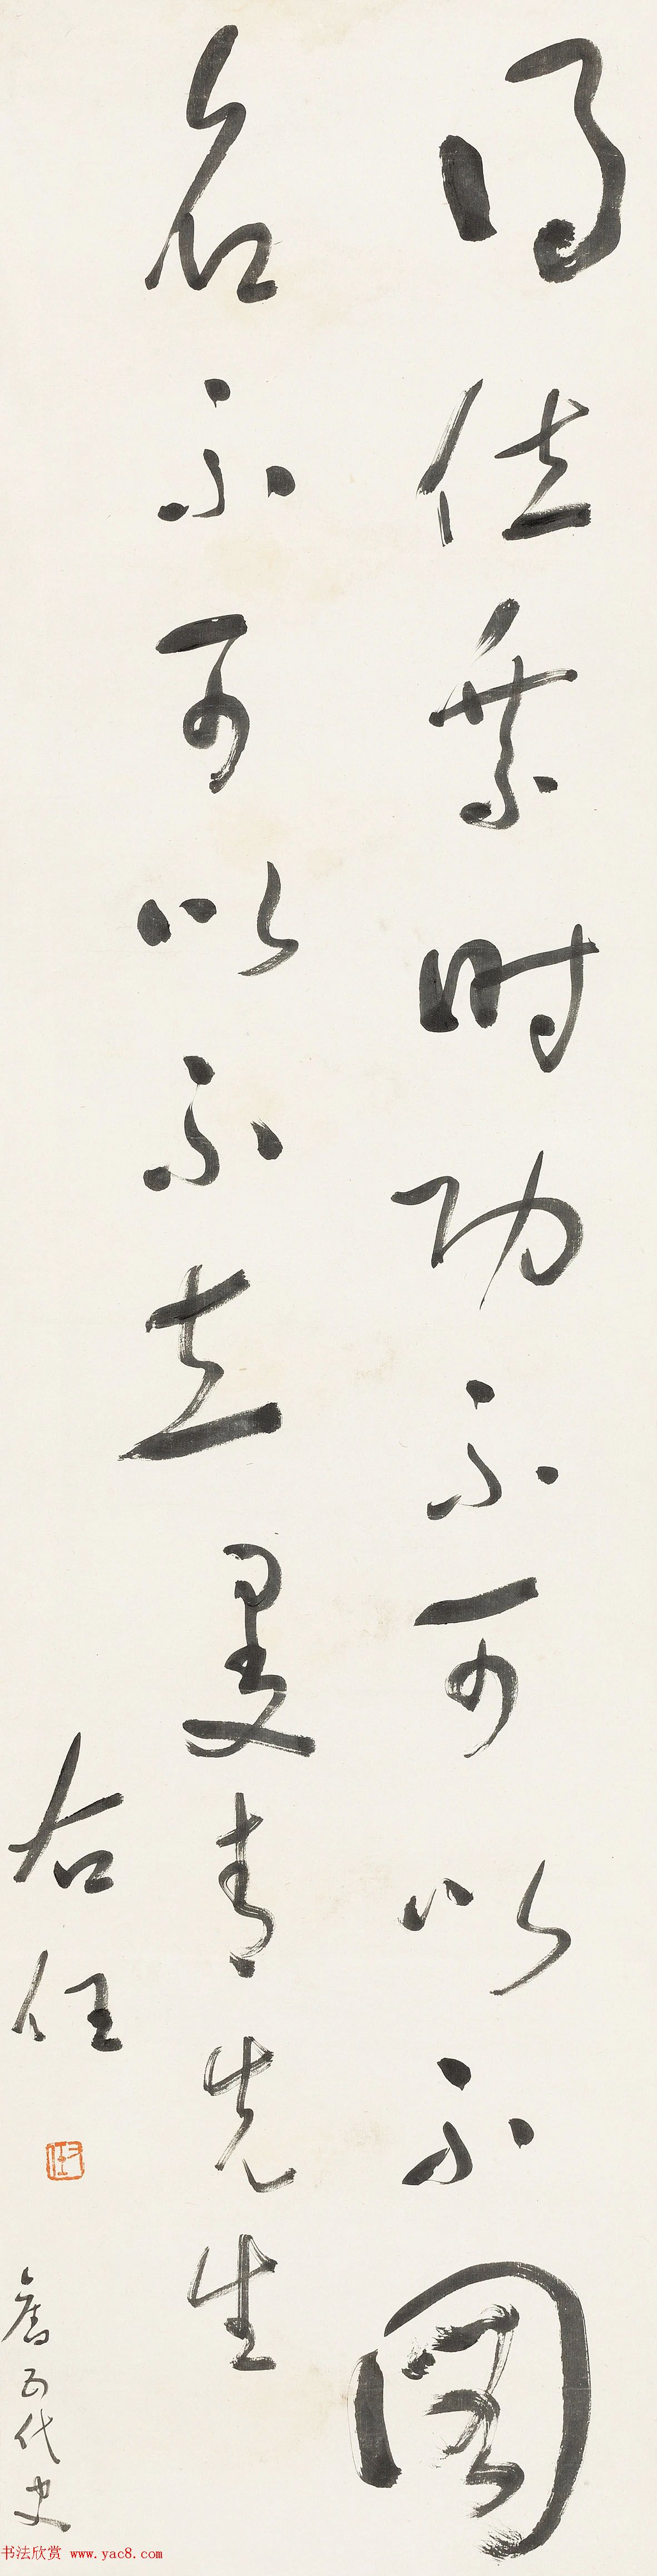 得位乘時功不可以不圖
名不可以不立 曼青先生
右任
舊五代史
书法欣赏 www.yac8.com